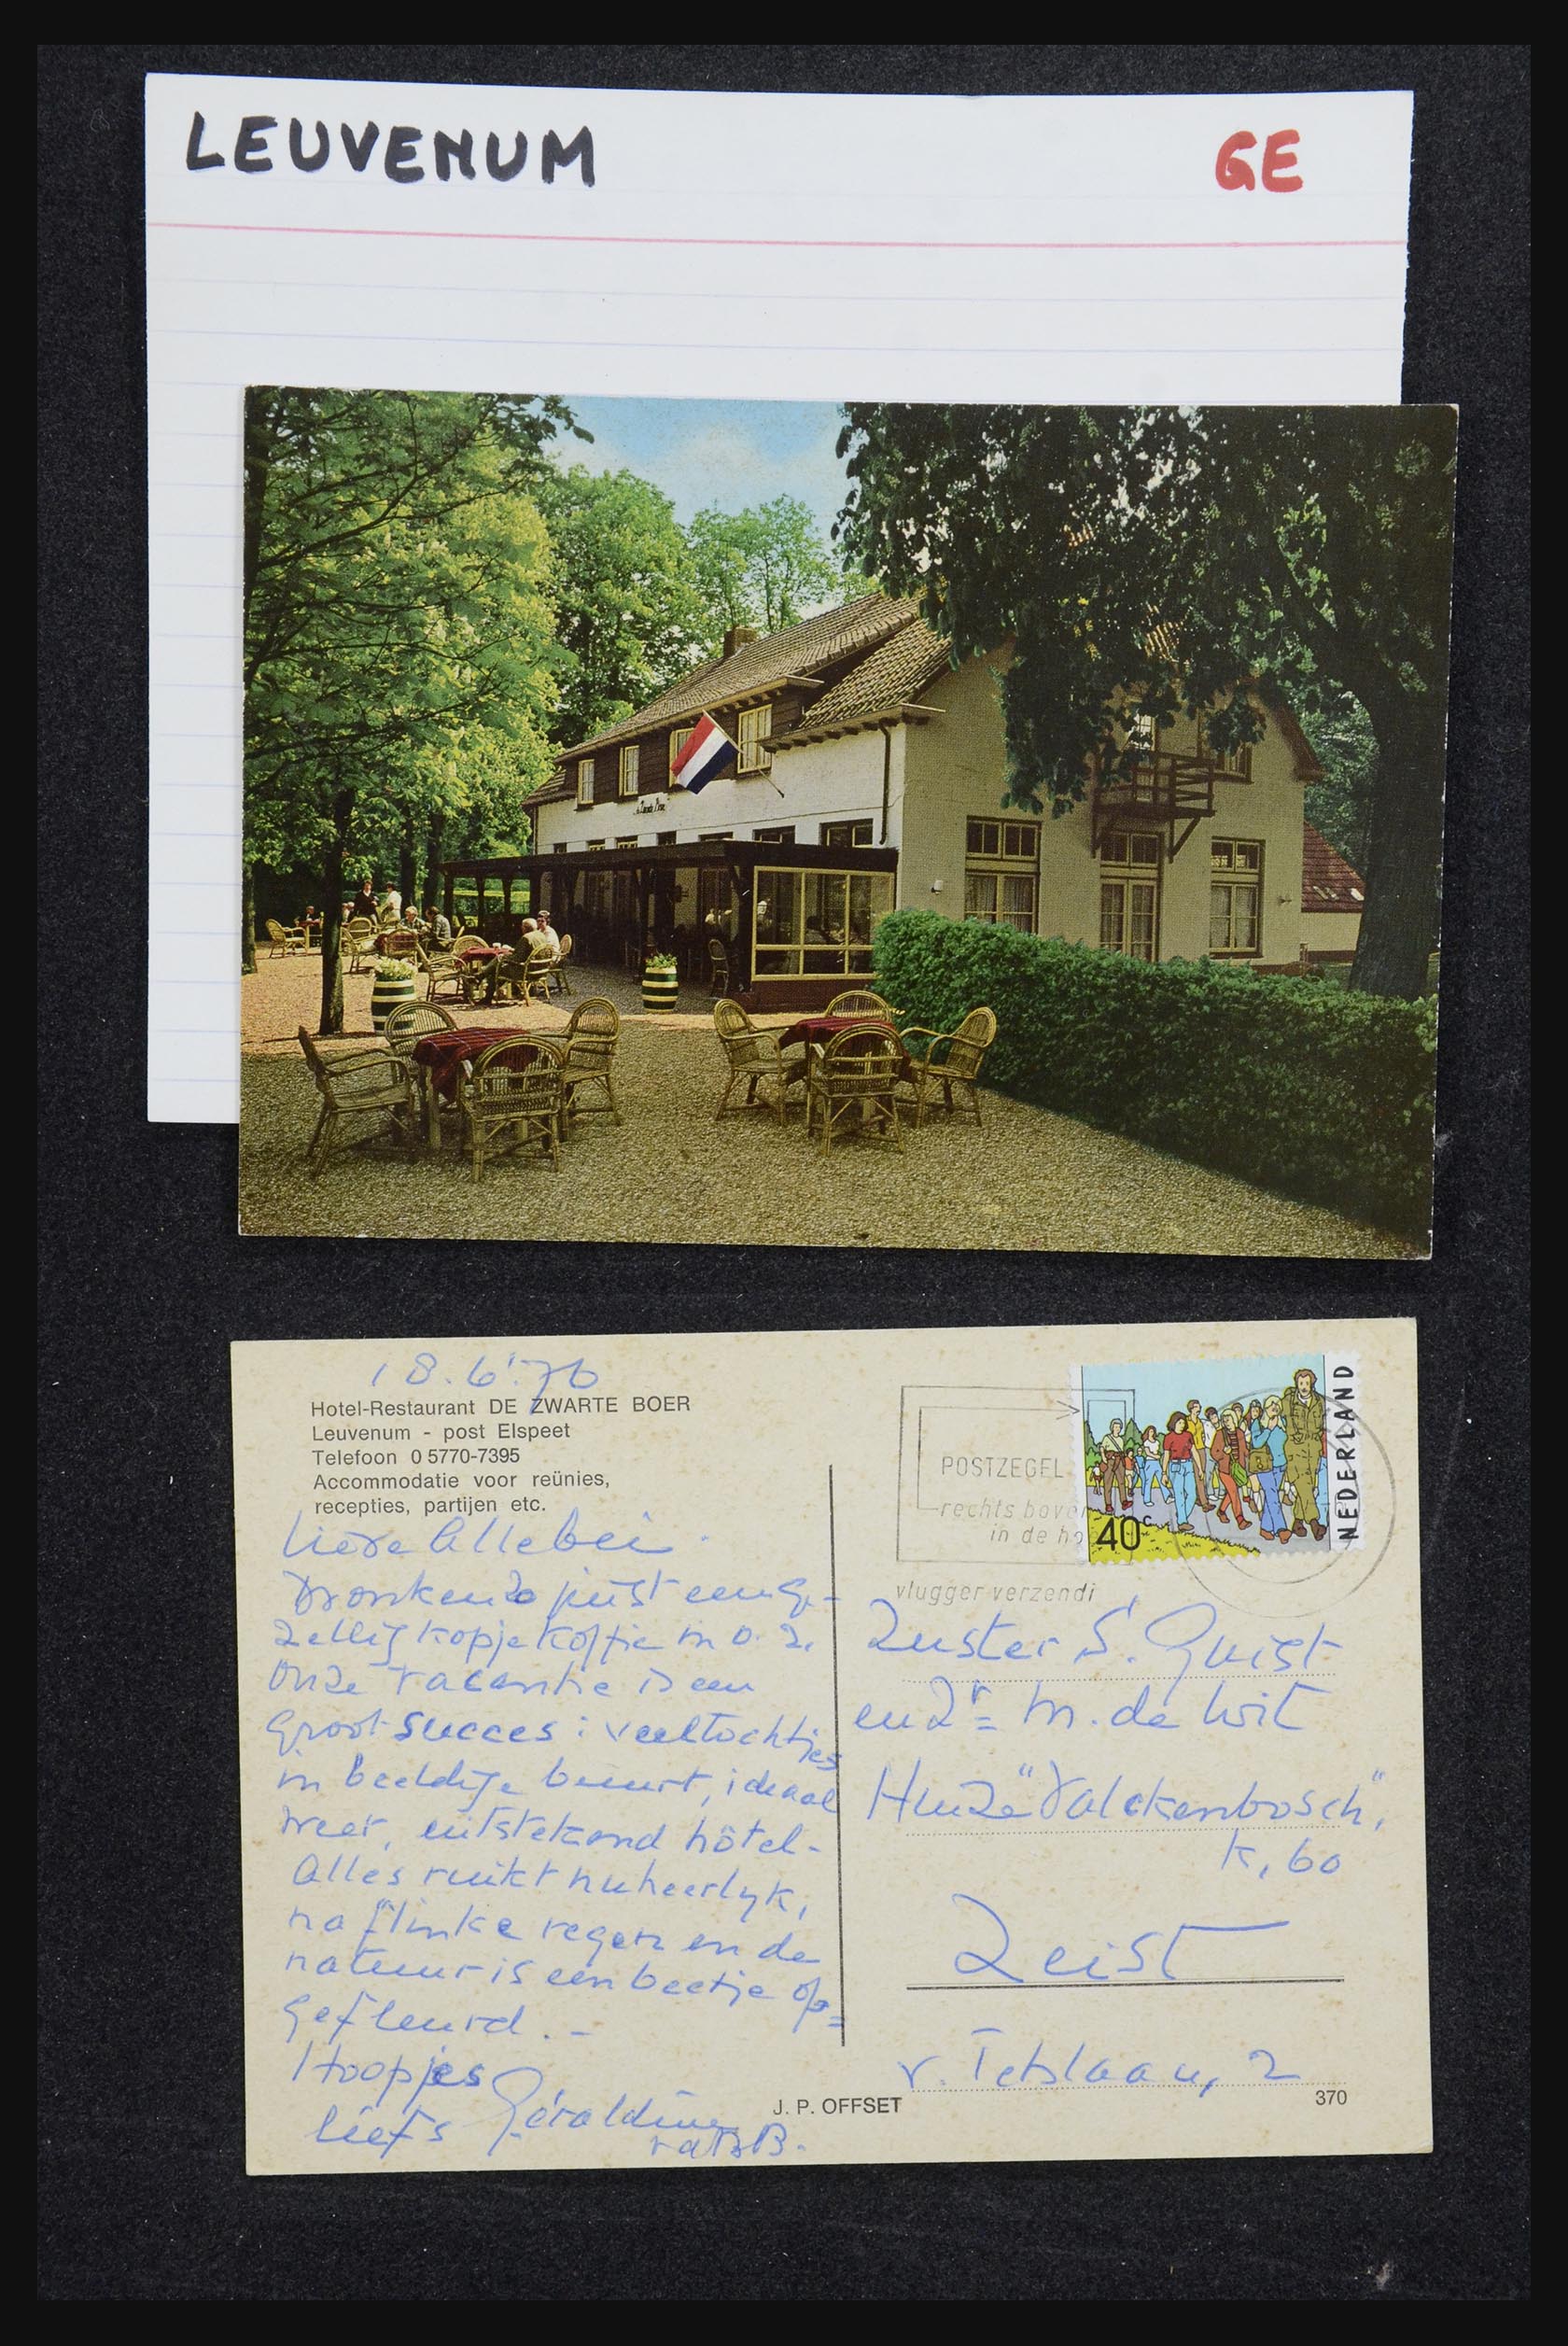 LEUVENUM
GE
18.6.'76
Hotel-Restaurant DE ZWARTE BOER
Leuvenum - post Elspeet
Telefoon 0 5770-7395
Accommodatie voor reünies,
recepties, partijen etc.
Lieve Allebei.
Dronken zo juist een ge-
zellig kopje koffie in o. z.
Onze vacantie is een
groot succes: veel tochtjes
in beeldige buurt, ideaal
weer, uitstekend hôtel-
Alles ruikt nu heerlyk,
na flinke regen en de
natuur is een beetje op=
gefleurd. -
Hoopjes
liefs Géraldine
J. P. OFFSET
POSTZEGEL
rechts boven
in de ho
vlugger verzendi
40c
NEDERLAND
Zuster S. Quist
en Zr= M. de Wit
Huize "Valckenbosch",
K, 60
Zeist
v. Tetslaan, 2
370